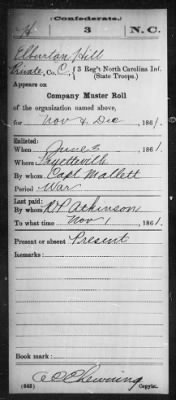 (Confederate.)
H 3 N.C.
Elburtan Hill
Private, Co. C, 3 Reg't North Carolina Inf.
(State Troops.)
Appears on
Company Muster Roll
of the organization named above,
for Nov & Dec, 1861.
Enlisted:
When June 3, 1861.
Where Fayetteville
By whom Capt Mallett
Period War
Last paid:
By whom R P Atkinson
To what time Nov 1, 1861.
Present or absent Present
Remarks:
Book mark:
(642) Copyist.